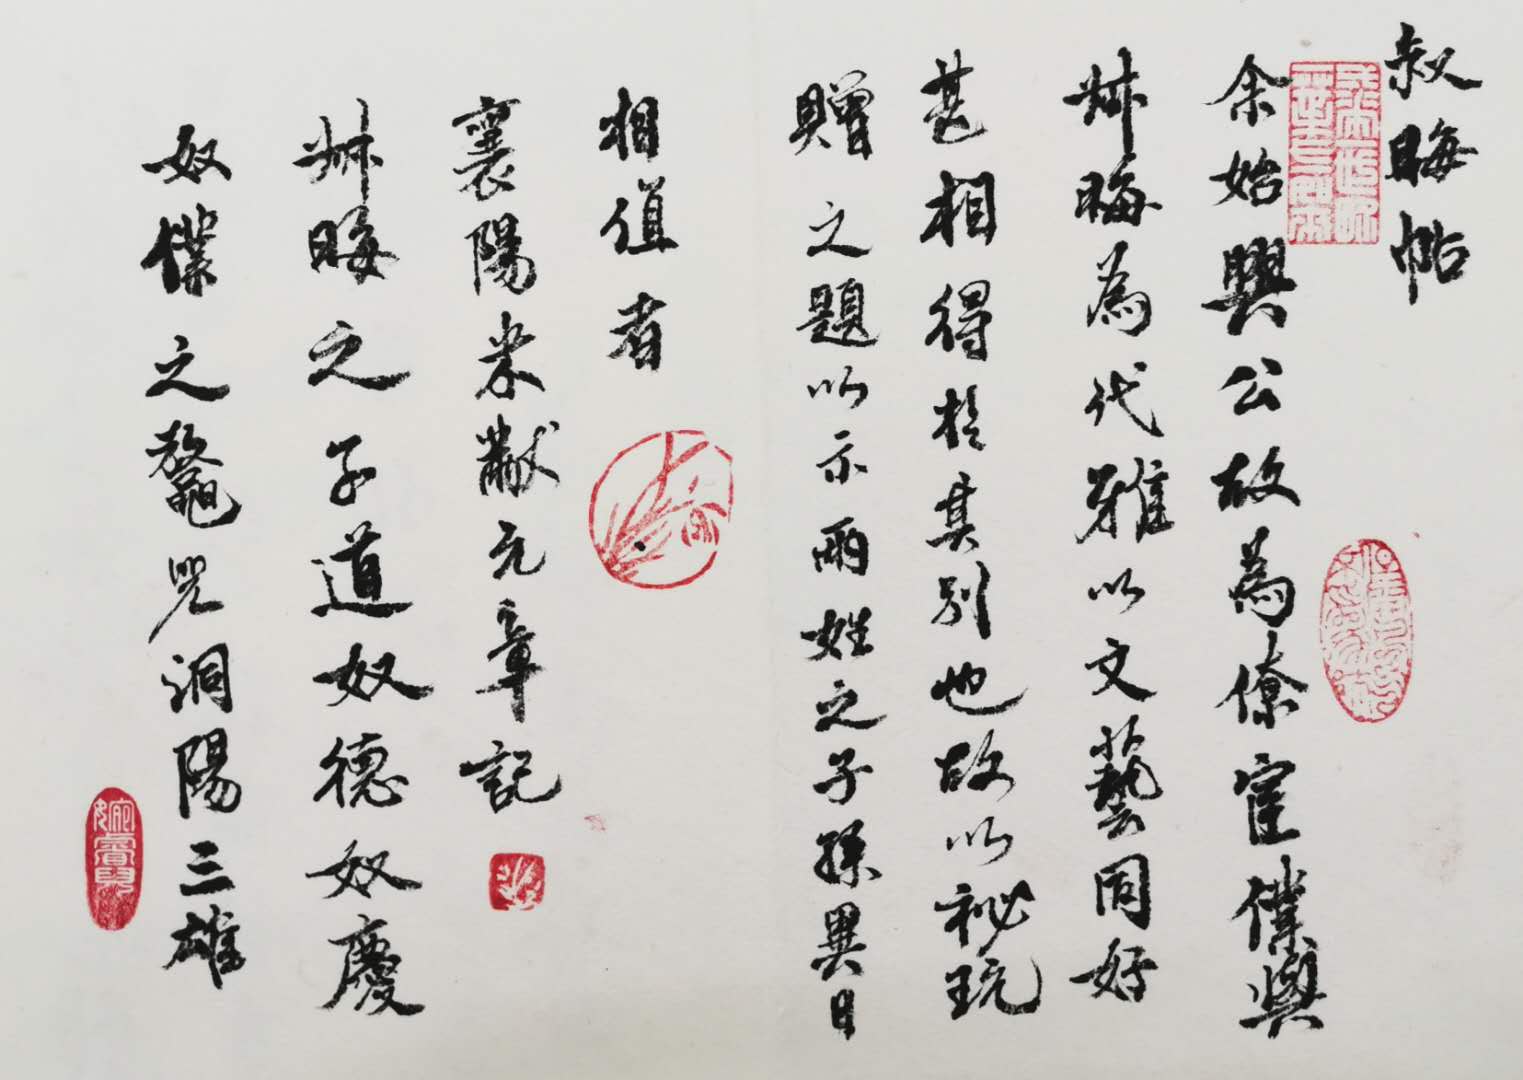 叔晦帖
余始興公故為僚宦僕與
叔晦為代雅以文藝同好
甚相得於其別也故以秘玩
贈之題以示兩姓之子孫異日
相值者
襄陽米黻元章記
叔晦之子道奴德奴慶
奴僕之鼇兒洞陽三雄